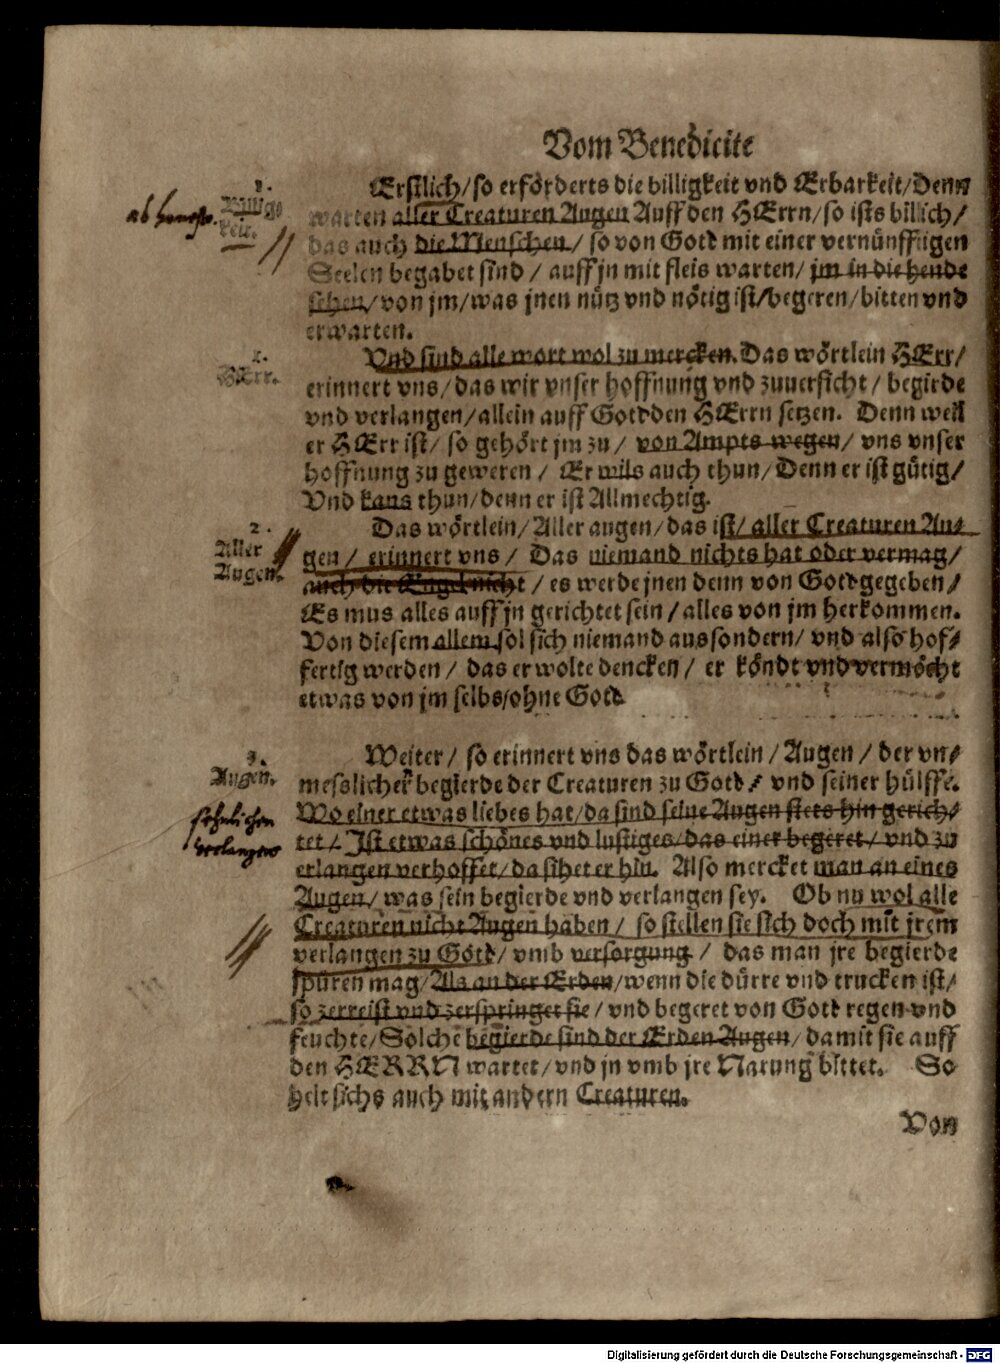 Vom Benedicite
1.
Billigkeit.
ab honesto.
Erstlich/so erforderts die billigkeit vnd Erbarkeit/Denn
warten aller Creaturen Augen Auff den HErrn/so ists billich/
das auch die Menschen/ so von Gott mit einer vernünfftigen
Seelen begabet sind / auff jn mit fleis warten/ jm in die hende
sehen/von jm/was jnen nütz vnd nötig ist/begeren/bitten vnd
erwarten.
1.
HErr.
Vnd sind alle wort wol zu mercken. Das wörtlein HErr/
erinnert vns/das wir vnser hoffnung vnd zuuersicht/ begirde
vnd verlangen/allein auff Gott den HErrn setzen. Denn weil
er HErr ist/ so gehört jm zu/ von Ampts wegen/ vns vnser
hoffnung zu geweren / Er wils auch thun/Denn er ist gütig/
Vnd kans thun/denn er ist Allmechtig.
2.
Aller
Augen.
Das wörtlein/Aller augen/das ist/ aller Creaturen Au-
gen/ erinnert vns/ Das niemand nichts hat oder vermag/
auch die Engel nicht/ es werde jnen denn von Gott gegeben/
Es mus alles auff jn gerichtet sein/alles von jm herkommen.
Von diesem allem sol sich niemand aussondern/ vnd also hof-
fertig werden/ das er wolte dencken/ er köndt vnd vermöcht
etwas von jm selbs/ohne Gott
3.
Augen.
sehnlichen
verlangens
Weiter/ so erinnert vns das wörtlein/Augen/ der vn-
messlicher begierde der Creaturen zu Gott/ vnd seiner hülffe.
Wo einer etwas liebes hat/da sind seine Augen stets hin gerich-
tet/ Ist etwas schönes vnd lustiges/das einer begeret/vnd zu
erlangen verhoffet/da sihet er hin. Also mercket man an eines
Augen/was sein begierde vnd verlangen sey. Ob nu wol alle
Creaturen nicht Augen haben/ so stellen sie sich doch mit jrem
verlangen zu Gott/ vmb versorgung/ das man jre begierde
spüren mag/Als an der Erden/wenn die dürre vnd trucken ist/
so zerreist vnd zerspringet sie/ vnd begeret von Gott regen vnd
feuchte/Solche begierde sind der Erden Augen/damit sie auff
den HERRN wartet/vnd jn vmb jre Narung bittet. So
helt sichs auch mit andern Creaturen.
Von
Digitalisierung gefördert durch die Deutsche Forschungsgemeinschaft - DFG